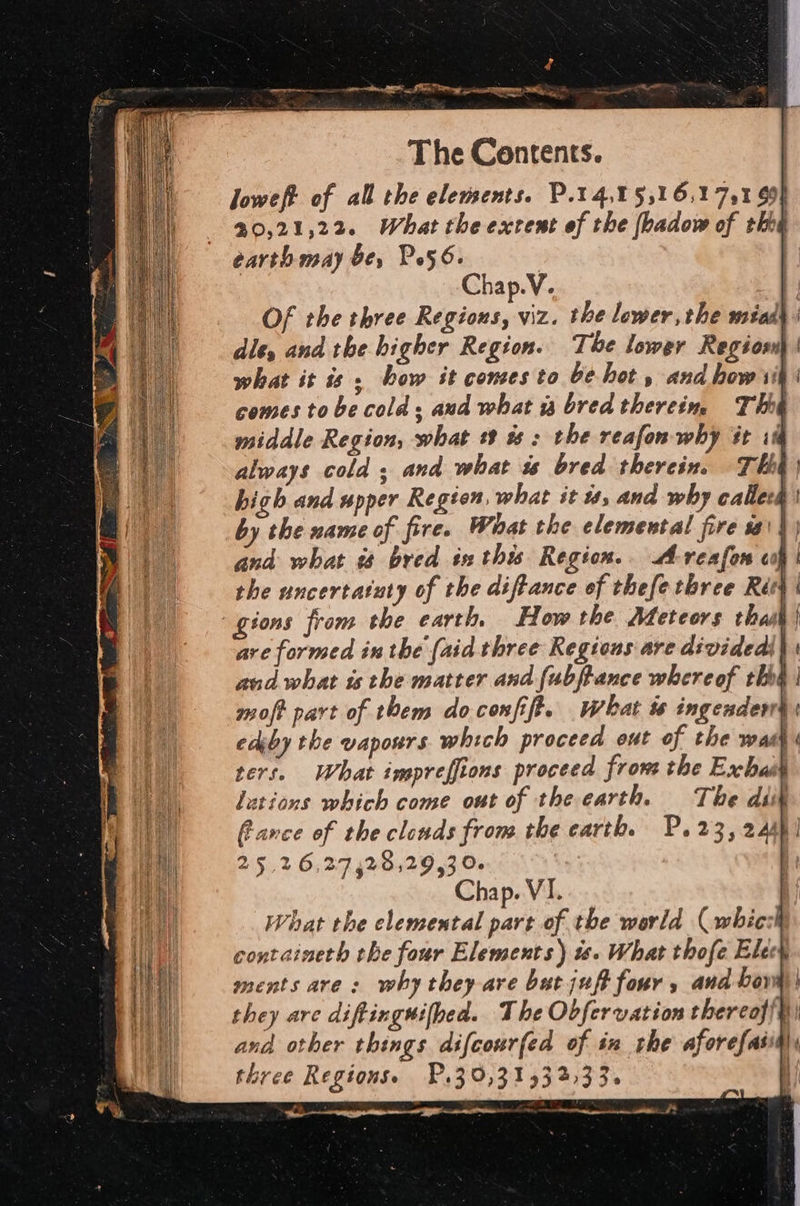 The Contents.
loweſt of all the elements. P.14,15,16,17,19
20,21,22. What the extent of the ſhadow of
earth may be, P.56.
Chap.V.
Of the three Regions, viz. the lower, the
dle, and the higher Region. The lower
what it is ; how it comes to be hot, and how
comes to be cold ; and what is bred therein,
middle Region, what it is : the reaſon why it
always cold ; and what is bred therein.
high and upper Region, what it is, and why
by the name of fire. What the elemental fire
and what is bred in this Region. A reaſon
the uncertainty of the diſtance of theſe three
gions from the earth. How the Meteors
are formed in the ſaid three Regions are
and what is the matter and ſubſtance whereof
moſt part of them do conſiſt. What is
ed by the vapours which proceed out of the
ters. What impreſſions proceed from the
lations which come out of the earth. The
ſtance of the clouds from the earth. P.23, 24
25.26,27,28,29,30.
Chap. VI.
What the elemental part of the world (
containeth the four Elements) is. What thoſe
ments are : why they are but juſt four, and
they are diſtinguiſhed. The Obſervation
and other things diſcourſed of in the
three Regions. P.30,31,32,33.